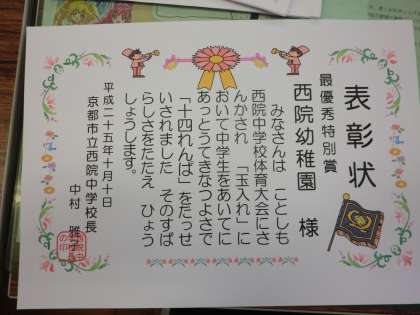 表彰状
最優秀特別賞
西院幼稚園 様
みなさんは ことしも
西院中学校体育大会にさ
んかされ 「玉入れ」に
おいて中学生をあいてに
あっとうてきなつよさで
「十四れんぱ」をたっせ
いされました そのすば
らしさをたたえ ひょう
しょうします。
平成二十五年十月十日
京都市立西院中学校長
中村 雅